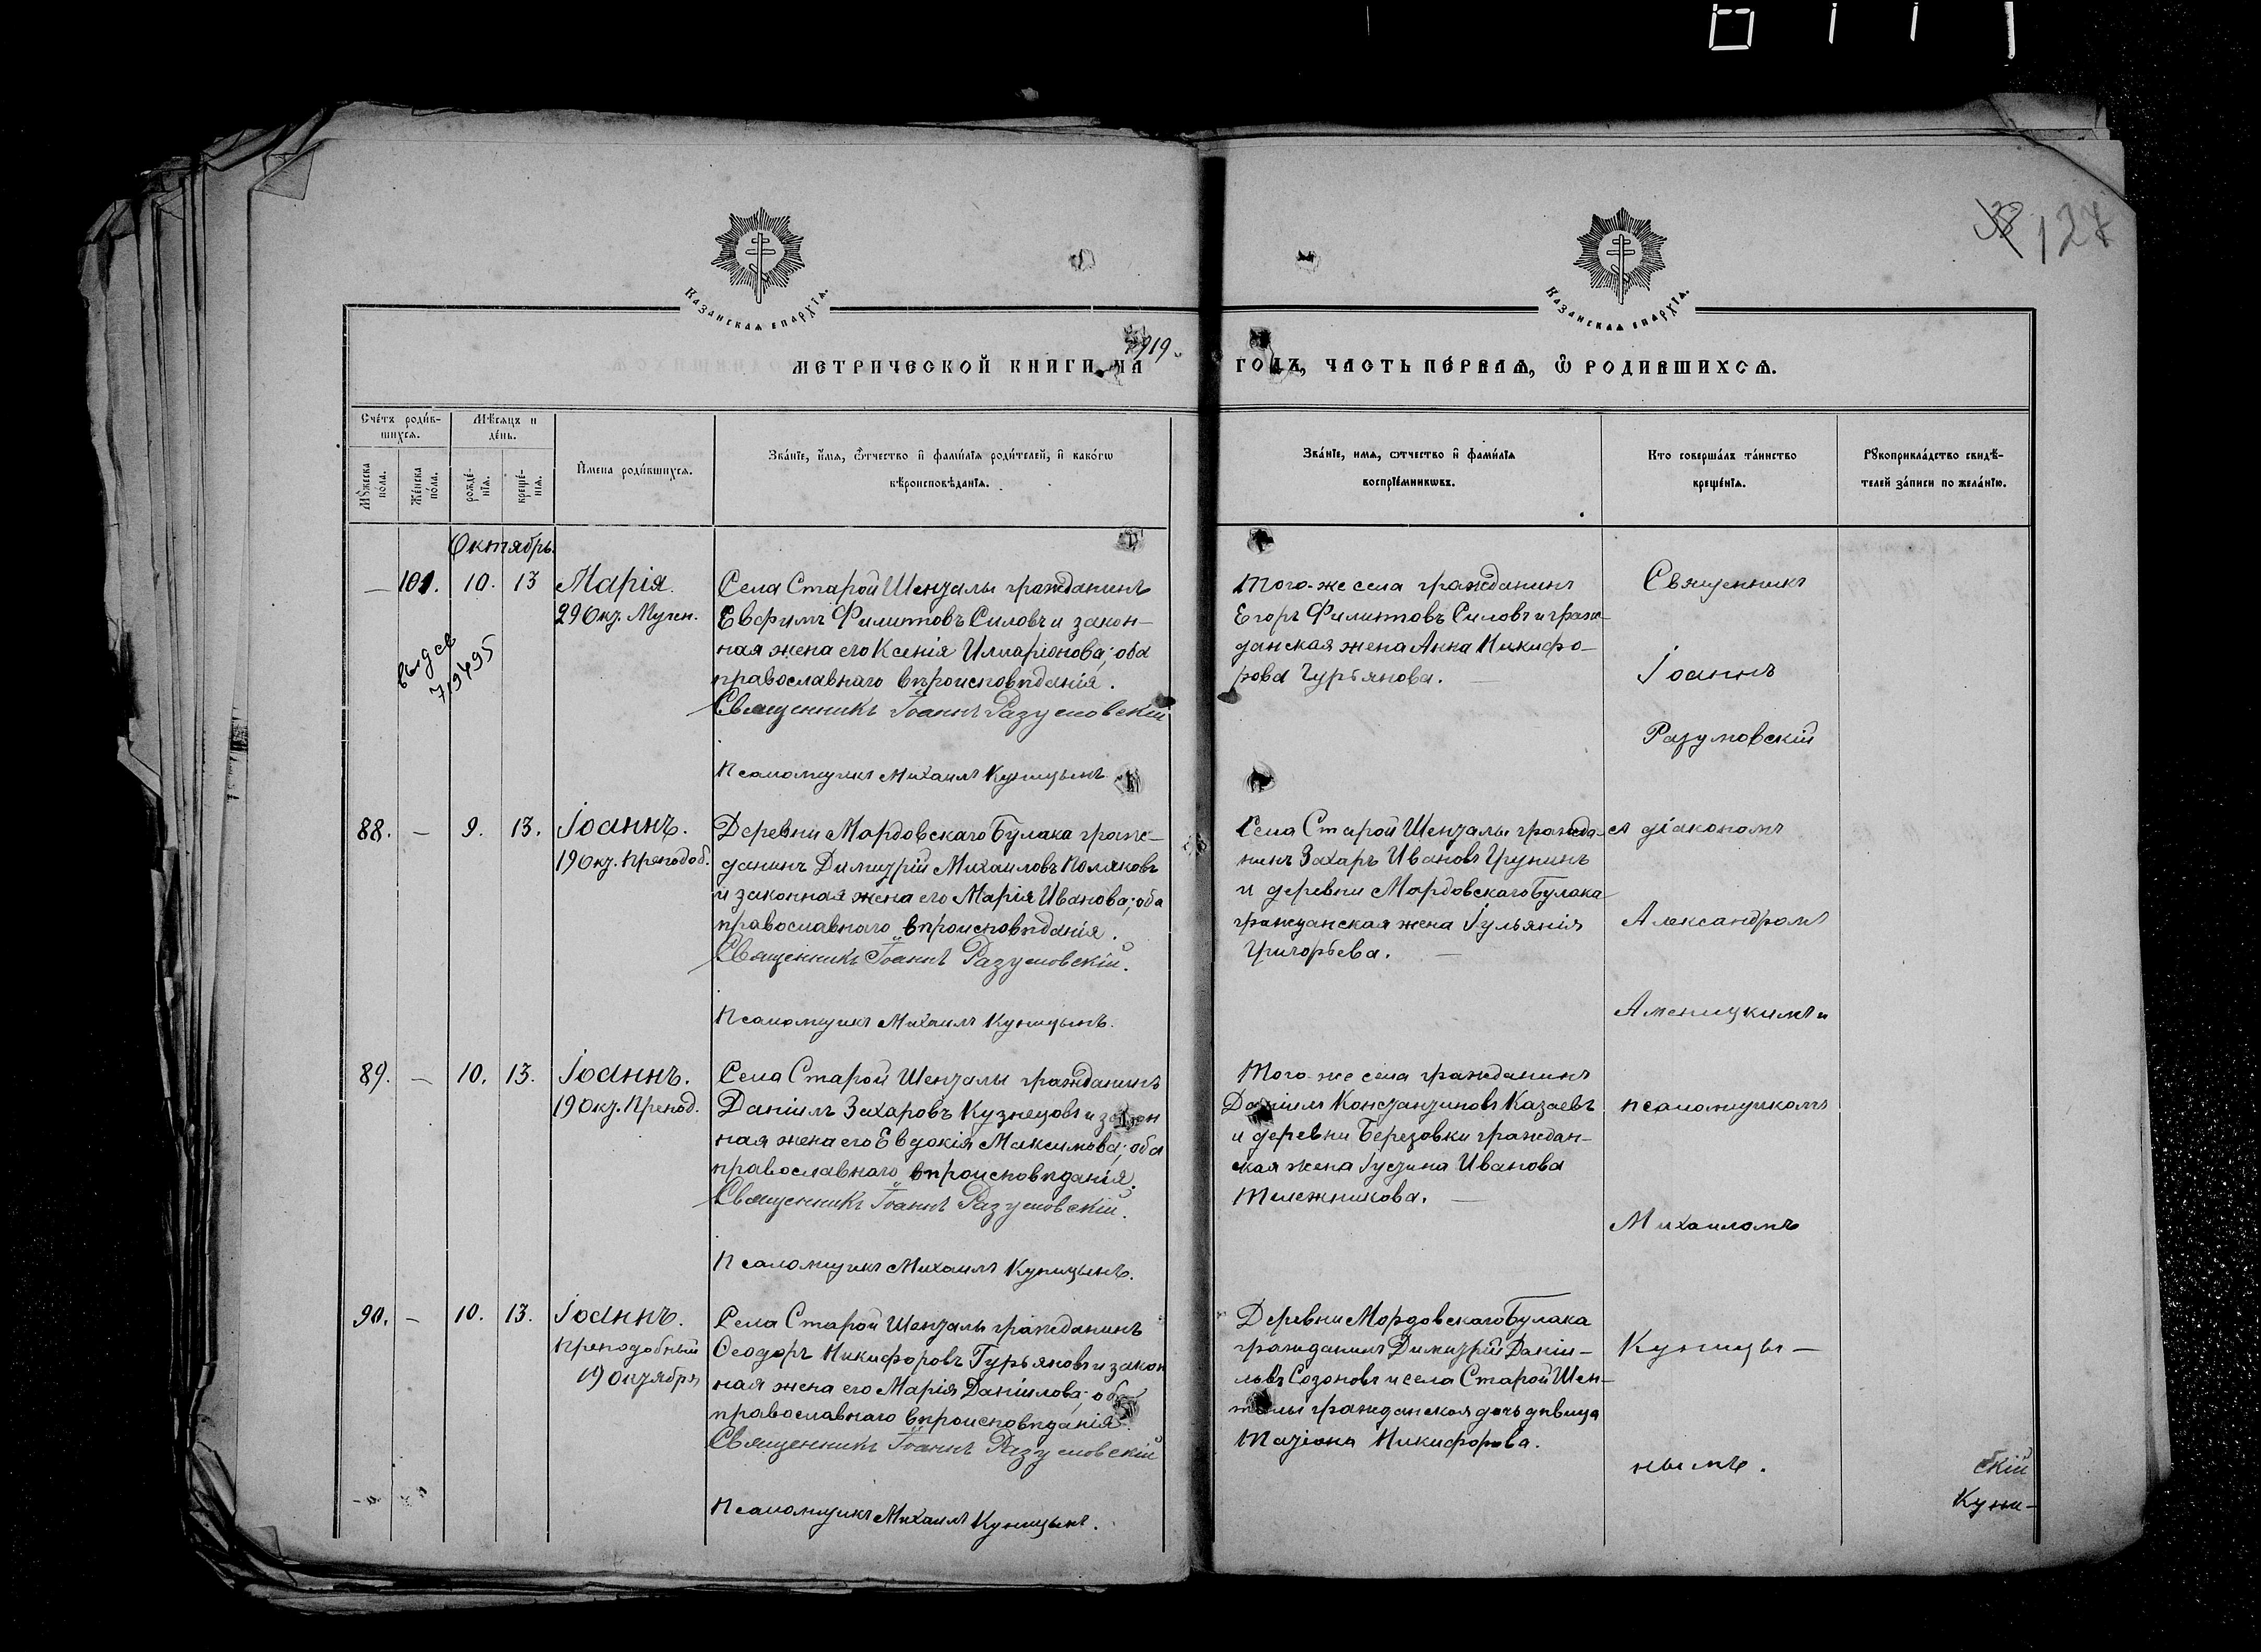 127
Казанскаѧ епархїѧ.
Казанскаѧ епархїѧ.
1919
МЕТРИЧЕСКОЙ КНИГИ НА
ГОДЪ, ЧАСТЬ ПЕ́РВАѦ, Ѽ РОДИВШИХСѦ.
Счéтъ роди́в-
шихсѧ.
Мѣ́сѧцъ и
дéнь.
Мꙋ́жеска
пóла.
Жéнска
пóла.
рождé-
нїѧ.
крещé-
нїѧ.
И҆мена роди́вшихсѧ.
Звáнїе, и҆́мѧ, ѻ҆́тчество и҆ фами́лїѧ роди́телей, и҆ какóгѡ
вѣроисповѣ́данїѧ.
Звáнїе, имѧ, ѻтчество и҆ фами́лїѧ
воспрїéмникѡвъ.
Кто совершáлъ тáинство
крещéнїѧ.
Рꙋкоприклáдство свидѣ́-
телей зáписи по желáнїю.
Октябрь.
— 101. 10. 13 Марія.
29 Окт. Мучен.
выд св
719495
Села Старой Шенталы гражданинъ
Евфимъ Филипповъ Силовъ и закон-
ная жена его Ксенія Иларіонова; оба
православнаго вѣроисповѣданія.
Священникъ Іоаннъ Разумовскій
Псаломщикъ Михаилъ Куницынъ
Того-же села гражданинъ
Егоръ Филипповъ Силовъ и граж-
данская жена Анна Никифо-
рова Гурьянова. —
Священникъ
Іоаннъ
Разумовскій
88. — 9. 13. Іоаннъ.
19 Окт. Преподоб.
Деревни Мордовскаго Булака граж-
данинъ Димитрій Михаиловъ Поляковъ
и законная жена его Марія Иванова; оба
православнаго вѣроисповѣданія.
Священникъ Іоаннъ Разумовскій.
Псаломщикъ Михаилъ Куницынъ.
Села Старой Шенталы гражда-
нинъ Захаръ Ивановъ Грунинъ
и деревни Мордовскаго Булака
гражданская жена Іульянія
Григорьева. —
съ діакономъ
Александромъ
Аменицкимъ и
89. — 10. 13. Іоаннъ.
19 Окт. Препод.
Села Старой Шенталы гражданинъ
Даніилъ Захаровъ Кузнецовъ и закон
ная жена его Евдокія Максимова; оба
православнаго вѣроисповѣданія.
Священникъ Іоаннъ Разумовскій.
Псаломщикъ Михаилъ Куницынъ.
Того-же села гражданинъ
Даніилъ Константиновъ Казаевъ
и деревни Березовки граждан-
ская жена Іустина Иванова
Тележникова. —
псаломщикомъ
Михаиломъ
90. — 10. 13. Іоаннъ.
Преподобный
19 октября
Села Старой Шенталы гражданинъ
Ѳеодоръ Никифоровъ Гурьяновъ и закон
ная жена его Марія Даніилова; оба
православнаго вѣроисповѣданія.
Священникъ Іоаннъ Разумовскій
Псаломщикъ Михаилъ Куницынъ.
Деревни Мордовскаго Булака
гражданинъ Димитрій Даніи-
ловъ Созоновъ и села Старой Шен-
талы гражданская дочь дѣвица
Татіана Никифорова.
Куницы-
нымъ.
скій
Куни-